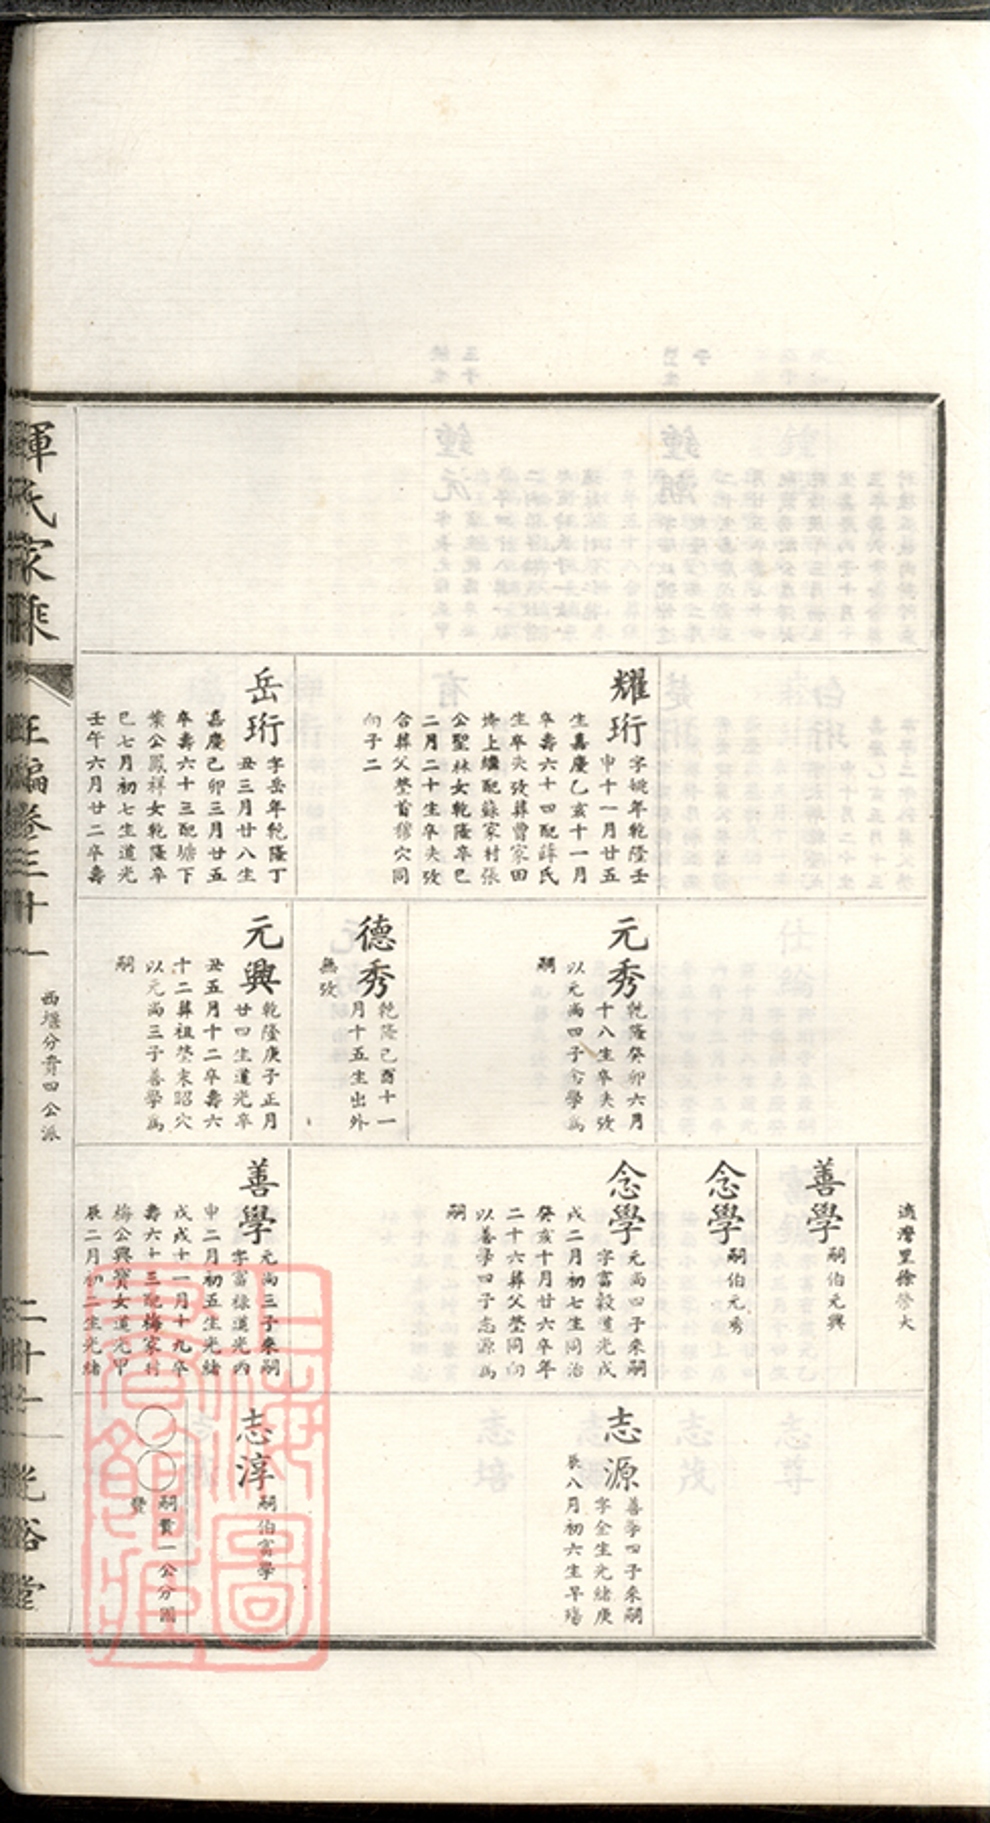 耀珩
字姚年乾隆壬
申十一月廿五
生嘉慶乙亥十一月
卒壽六十四配薛氏
生卒失攷葬曹家田
塝上繼配蘇家村張
公聖林女乾隆辛巳
二月二十生卒失攷
合葬父塋首穆穴同
向子二
岳珩
字岳年乾隆丁
丑三月廿八生
嘉慶己卯三月廿五
卒壽六十三配塘下
葉公鳳祥女乾隆辛
巳七月初七生道光
壬午六月廿二卒壽
元秀
乾隆癸卯六月
十八生卒失攷
以元尚四子念學為
嗣
德秀
乾隆己酉十一
月十五生出外
無攷
元興
乾隆庚子正月
廿四生道光辛
丑五月十二卒壽六
十二葬祖塋末昭穴
以元尚三子善學為
嗣
灣里徐 大
善學
嗣伯元興
念學
嗣伯元秀
念學
元尚四子來嗣
字富穀道光戊
戌二月初七生同治
癸亥十月廿六卒年
二十六葬父塋同向
以善學四子志源為
嗣
善學
元尚三子來嗣
字富祿道光丙
申二月初五生光緒
戊戌十一月十九卒
壽六十三配梅家村
梅公興寶女道光甲
辰二月初二生光緒
志源
善學四子來嗣
字全生光緒庚
辰八月初六生早殤
志淳
嗣伯富學
○○
嗣貴一公分圖
惲氏家乘
卷三十一
西堰分貴四公派
二十一
光裕堂
上海圖書館藏